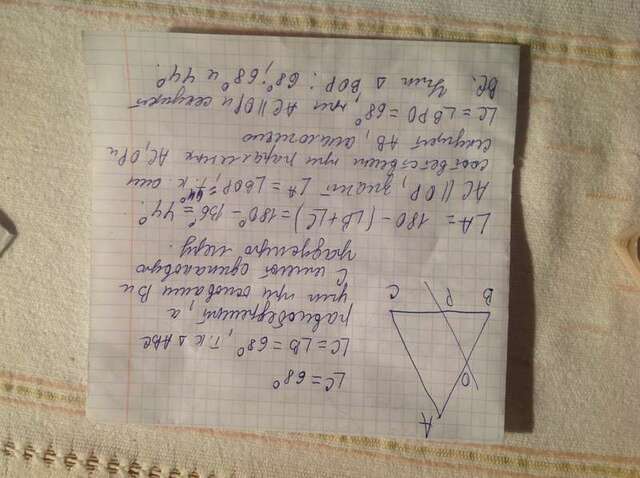 A
O
B P C
∠C = 68°
∠C = ∠B = 68°, т.к △ABC
равнобедренный, а
углы при основании B и
C имеют одинаковую
градусную меру.
∠A = 180 - (∠B + ∠C) = 180° - 136° = 44°.
AC || OP, значит ∠A = ∠BOP, = 44° т.к. они
соответствен при параллных AC, OP и
секущей AB, аналогично
∠C = ∠BPO = 68°, при AC || OP и секущей
BC. Углы △ BOP: 68°; 68° и 44°.